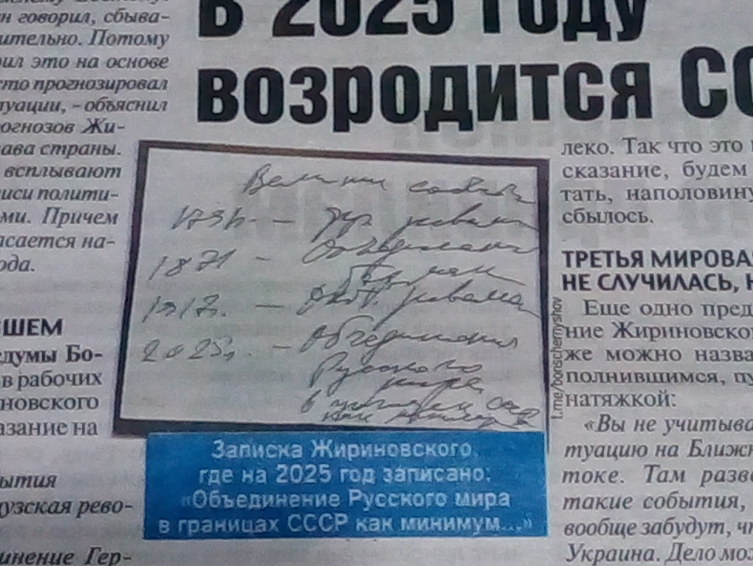 В 2025 ГОДУ
ВОЗРОДИТСЯ СС
н говорил, сбыва-
ительно. Потому
рил это на основе
сто прогнозировал
туации, – объяснил
рогнозов Жи-
ава страны.
всплывают
иси полити-
ми. Причем
асается на-
ода.
ВШЕМ
едумы Бо-
в рабочих
новского
азание на
ытия
узская рево-
динение Гер-
Великие события
1789г. – фр. революция
1871 – Объединение
Германии
1917г. – Окт. революция
2025г. – Объединение
Русского
мира
в границах СССР
как минимум
t.me/borischernyshov
Записка Жириновского,
где на 2025 год записано:
«Объединение Русского мира
в границах СССР как минимум...»
леко. Так что это
сказание, будем
тать, наполовину
сбылось.
ТРЕТЬЯ МИРОВАЯ
НЕ СЛУЧИЛАСЬ, Н
Еще одно пред
ние Жириновско
же можно назва
полнившимся, пу
натяжкой:
«Вы не учитыва
туацию на Ближн
токе. Там разв
такие события,
вообще забудут, чт
Украина. Дело мо